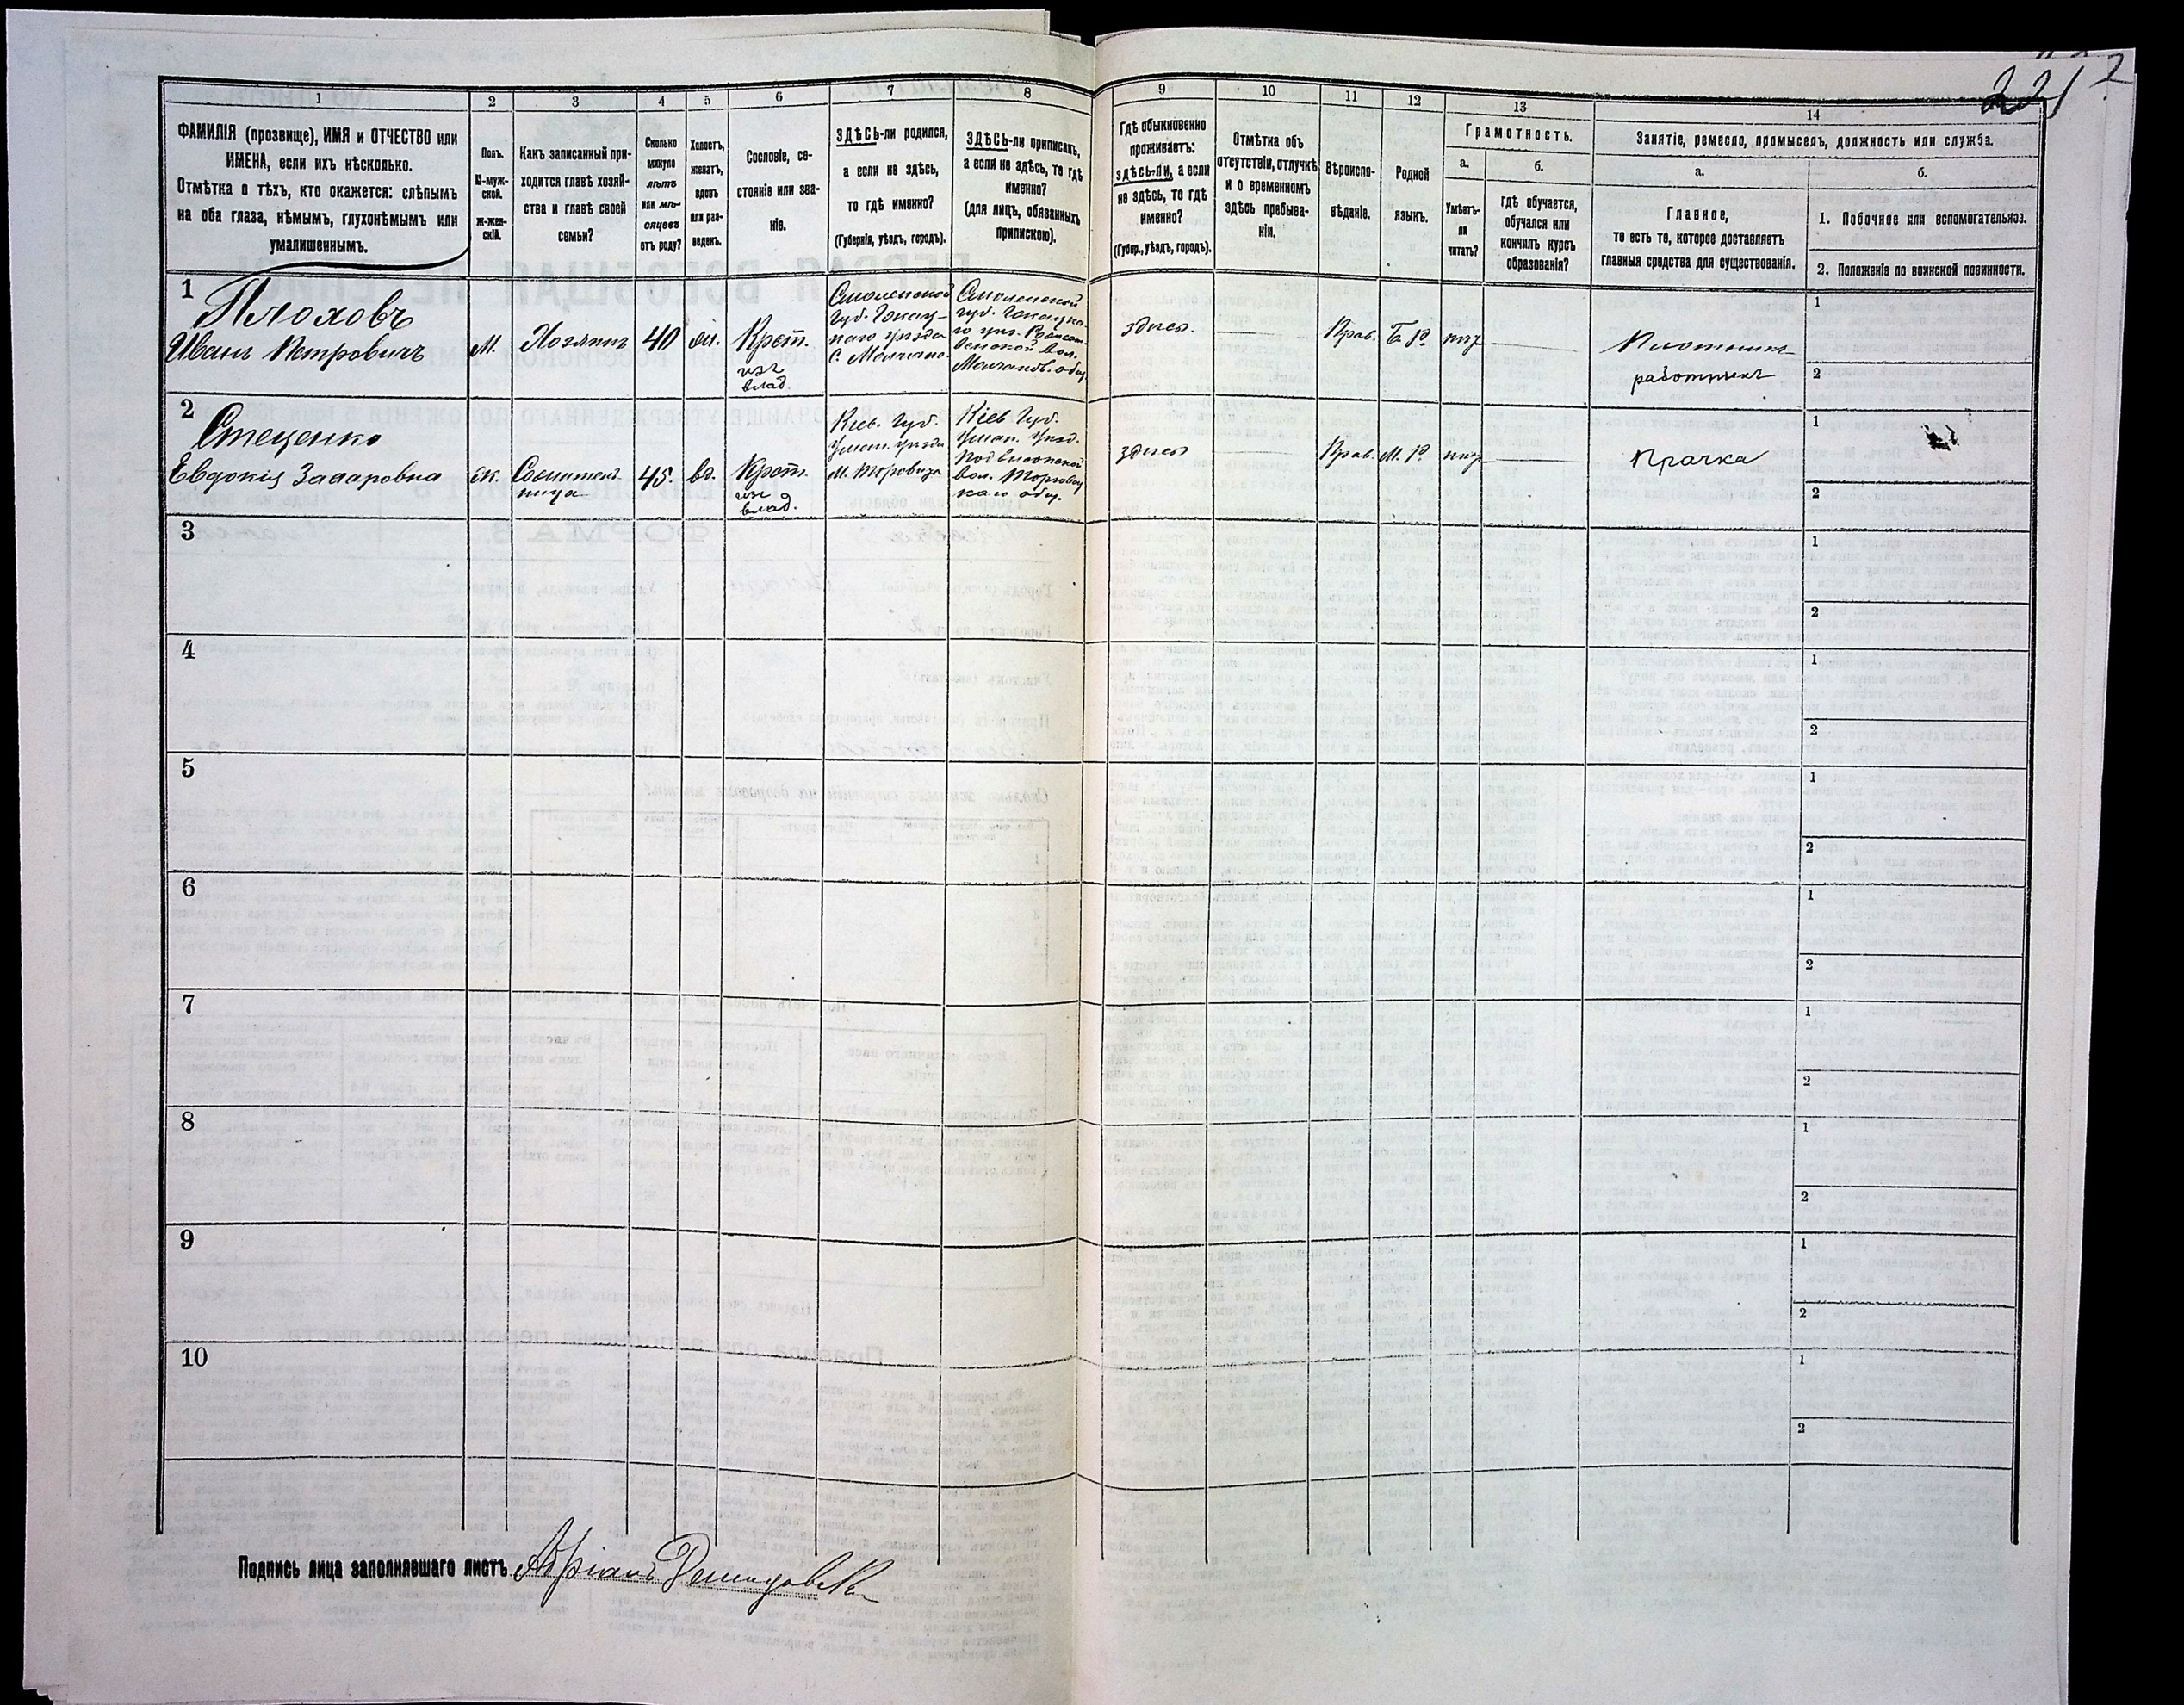 221
1
2
3
4
5
6
7
8
9
10
11
12
13
14
ФАМИЛІЯ (прозвище), ИМЯ и ОТЧЕСТВО или
ИМЕНА, если ихъ нѣсколько.
Отмѣтка о тѣхъ, кто окажется: слѣпымъ
на оба глаза, нѣмымъ, глухонѣмымъ или
умалишеннымъ.
Полъ.
М-муж-
ской.
Ж-жен-
скій.
Какъ записанный при-
ходится главѣ хозяй-
ства и главѣ своей
семьи?
Сколько
минуло
лѣтъ
или мѣ-
сяцевъ
отъ роду?
Холостъ,
женатъ,
вдовъ
или раз-
веденъ.
Сословіе, со-
стояніе или зва-
ніе.
ЗДѢСЬ-ли родился,
а если не здѣсь,
то гдѣ именно?
(Губернія, уѣздъ, городъ).
ЗДѢСЬ-ли приписанъ,
а если не здѣсь, то гдѣ
именно?
(для лицъ, обязанныхъ
припискою).
Гдѣ обыкновенно
проживаетъ:
здѣсь-ли, а если
не здѣсь, то гдѣ
именно?
(Губер., уѣздъ, городъ).
Отмѣтка объ
отсутствіи, отлучкѣ
и о временномъ
здѣсь пребыва-
ніи.
Вѣроиспо-
вѣданіе.
Родной
языкъ.
Грамотность.
а.
б.
Умѣетъ-
ли
читать?
гдѣ обучается,
обучался или
кончилъ курсъ
образованія?
Занятіе, ремесло, промыселъ, должность или служба.
а.
б.
Главное,
то есть то, которое доставляетъ
главныя средства для существованія.
1. Побочное или вспомогательное.
2. Положеніе по воинской повинности.
1
Плоховъ
Иванъ Петровичъ
М.
Хозяинъ
40
Крест.
изъ
влад.
Смоленской
губ.
уѣзда
с.
Смоленской
губ.
вол.
здѣсь.
Прав.
Б Р.
Плотникъ
работникъ
1
2
2
Стеценко
Евдокія Захаровна
Ж.
45.
вд.
Крест.
изъ
влад.
Кіев. губ.
Уман. уѣзда
м. Торговица
Кіев губ.
Уман. уѣзд.
Подвысоцкой
вол. Торговиц
каго общ.
здѣсь
Прав.
М. Р.
Прачка
1
2
3
1
2
4
1
2
5
1
2
6
1
2
7
1
2
8
1
2
9
1
2
10
1
2
Подпись лица заполнявшаго листъ